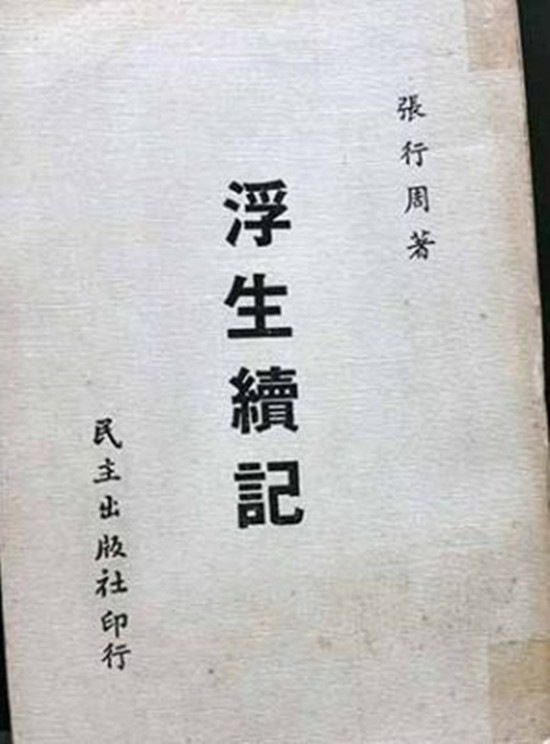 張行周著
浮生續記
民主出版社印行